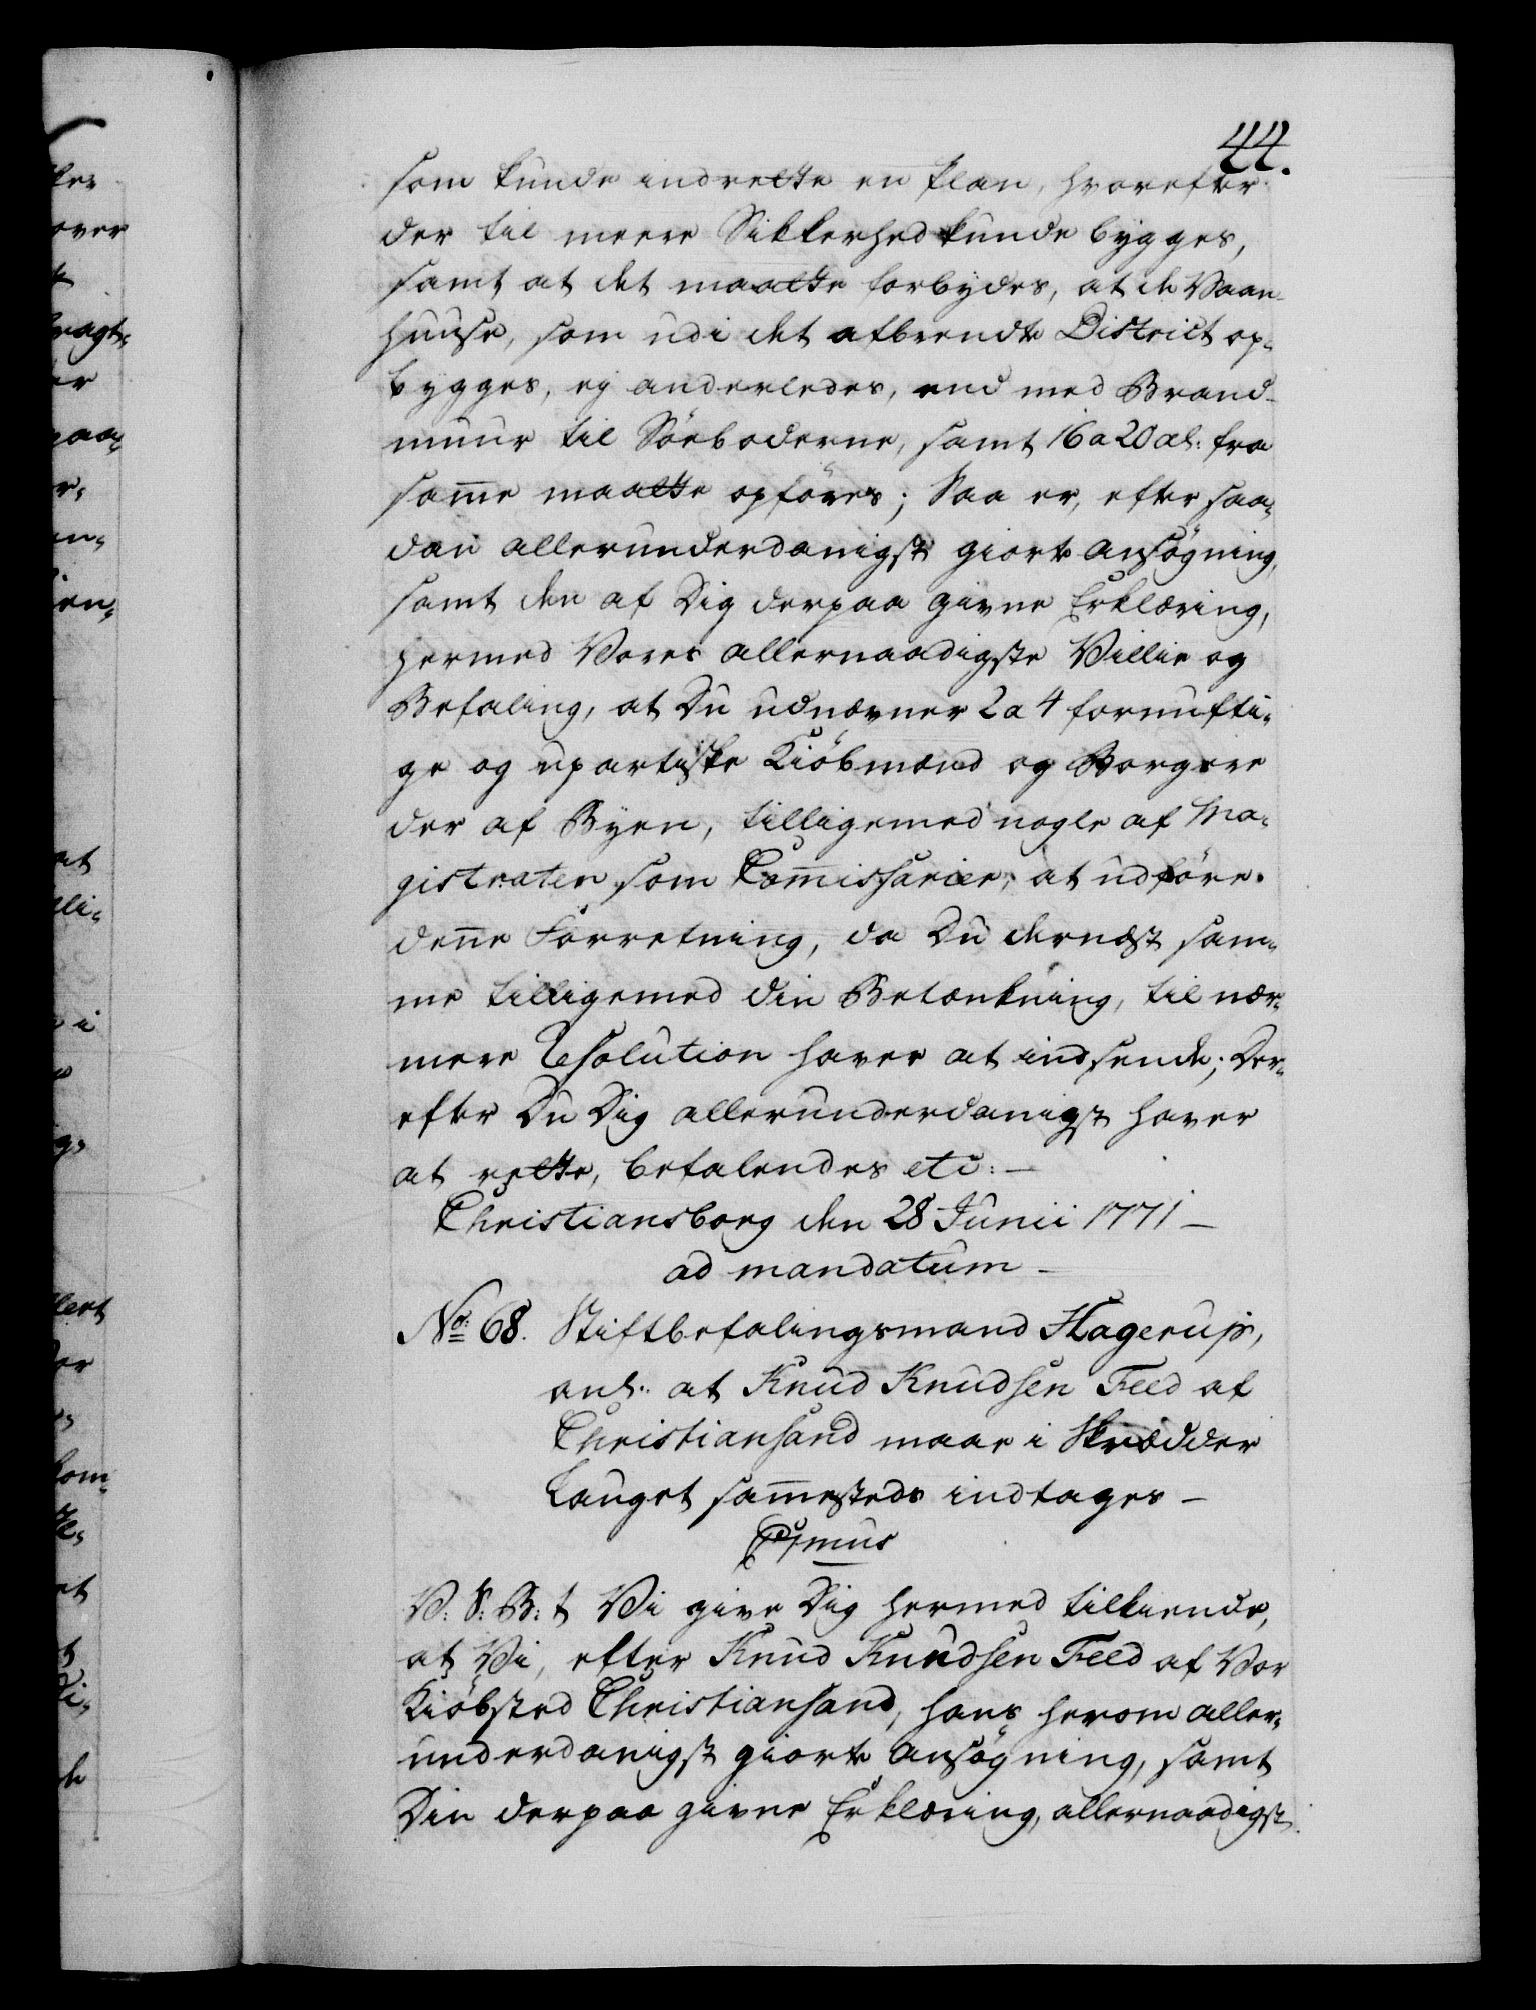 44.
som kunde indrette en Plan, hvorefter
der til meere Sikkerhed kunde bygges,
samt at det maatte forbydes, at de Vaan-
huuse, som udi det afbrendte District op-
bygges, ej anderledes, end med Brand-
muur til Söeboderne, samt 16 a 20 al: fra
sam̅e maatte opföres; Saa er, efter saa-
dan allerunderdanigst giorte Ansögning,
samt den af Dig derpaa givne Erklæring,
hermed Vores allernaadigste Villie og
Befaling, at Du udnævner 2 a 4 fornufti-
ge og upartiske Kiöbmænd og Borgere
der af Byen, tilligemed nogle af Ma-
gistraten som Com̅issarier, at udföre
den̅e Forretning, da Du dernæst sam-
me tilligemed din Betænkning, til nær-
mere Resolution haver at indsende; Der-
efter Du Dig allerunderdanigst haver
at rette, befalendes etc: —
Christiansborg den 28 Junii 1771 —
ad mandatum —
No: 68. Stiftbefalingsmand Hagerup,
anl: at Knud Knudsen Feed af
Christiansand maae i Skrædder
Lauget sam̅esteds indtages —
V: S: B: t Vi give Dig hermed tilkiende,
at Vi, efter Knud Knudsen Feed af Vor
Kiöbsted Christiansand, hans herom aller-
underdanigst giorte Ansögning, samt
Din derpaa givne Erklæring, allernaadigst